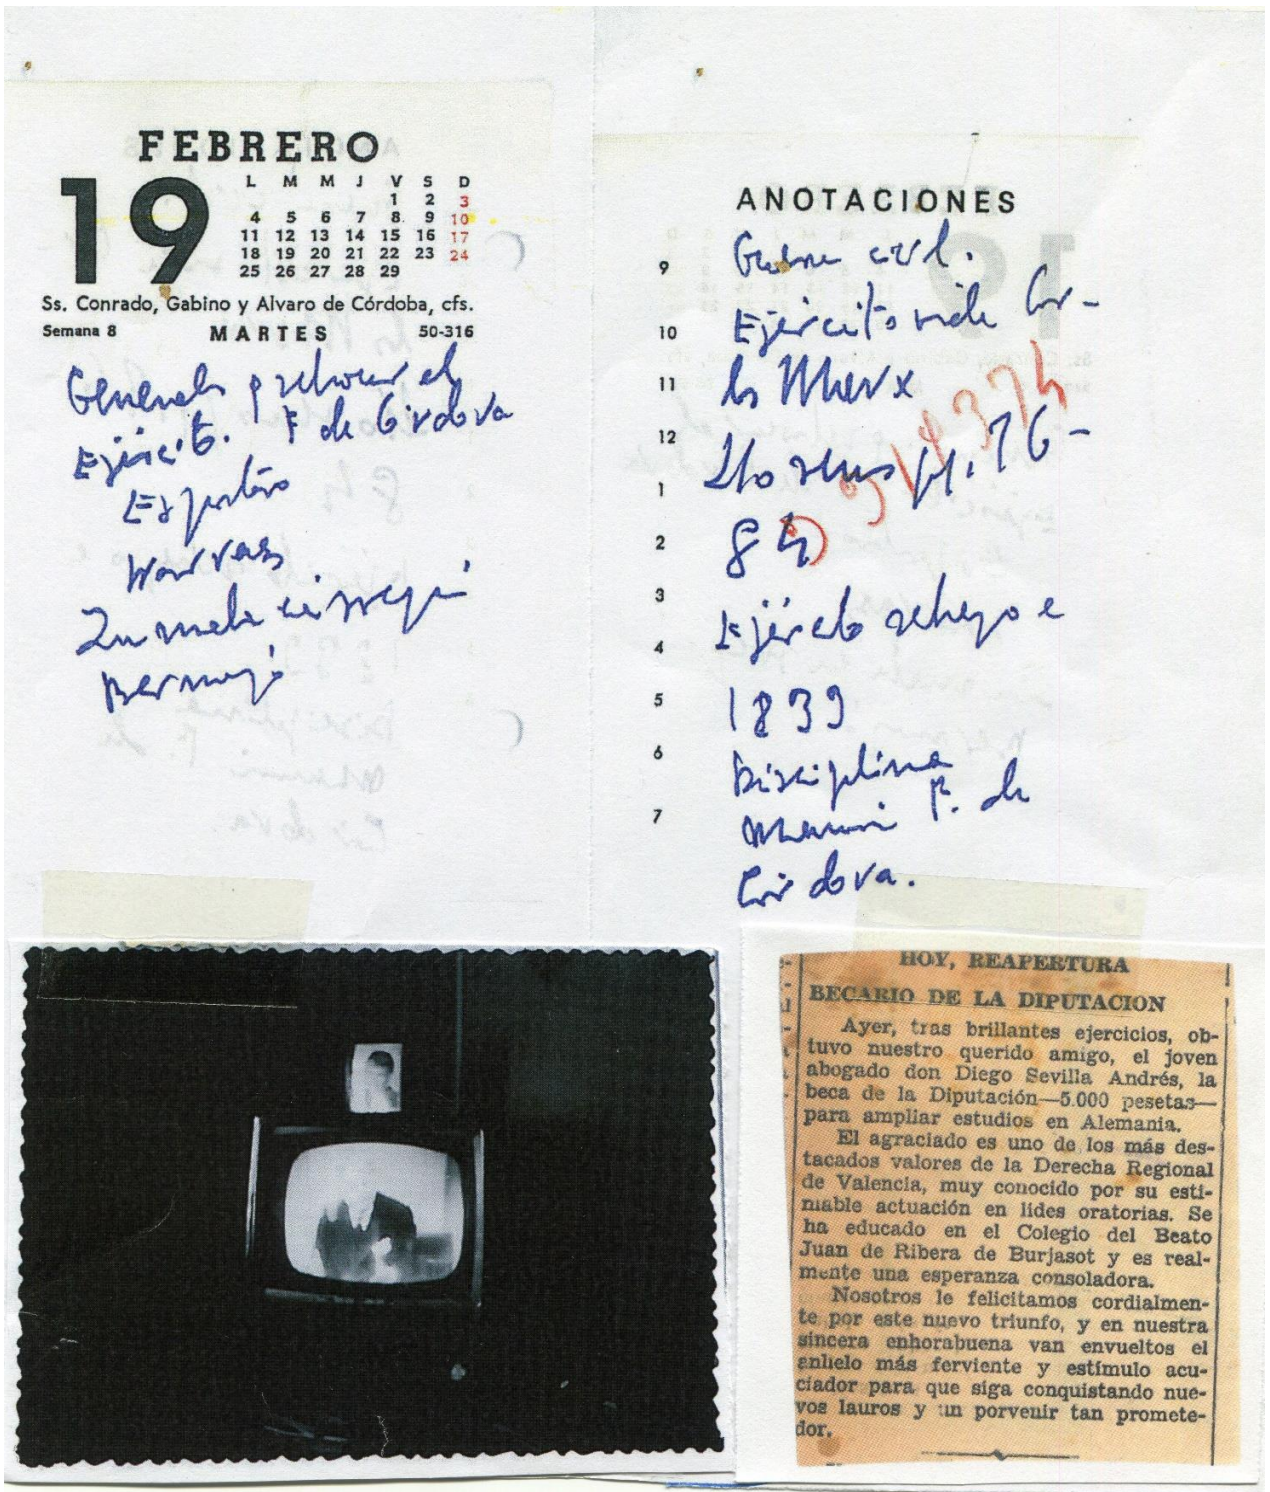 FEBRERO
19
L M M J V S D
1 2 3
4 5 6 7 8 9 10
11 12 13 14 15 16 17
18 19 20 21 22 23 24
25 26 27 28 29
Ss. Conrado, Gabino y Alvaro de Córdoba, cfs.
Semana 8 MARTES 50-316
Generales el
Ejército. F de Córdova
Espartero
Narvaez
Zumalacarregui
ANOTACIONES
9 Guerra civil.
10 Ejército vide Car-
11 los Marx
12 Llorens pp. 76-
1
2 84
3
4 Ejército e
5 1839
6 Disciplina
7 F. de
Córdova.
HOY, REAPERTURA
BECARIO DE LA DIPUTACION
Ayer, tras brillantes ejercicios, ob-
tuvo nuestro querido amigo, el joven
abogado don Diego Sevilla Andrés, la
beca de la Diputación—5.000 pesetas—
para ampliar estudios en Alemania.
El agraciado es uno de los más des-
tacados valores de la Derecha Regional
de Valencia, muy conocido por su esti-
mable actuación en lides oratorias. Se
ha educado en el Colegio del Beato
Juan de Ribera de Burjasot y es real-
mente una esperanza consoladora.
Nosotros le felicitamos cordialmen-
te por este nuevo triunfo, y en nuestra
sincera enhorabuena van envueltos el
anhelo más ferviente y estímulo acu-
ciador para que siga conquistando nue-
vos lauros y un porvenir tan promete-
dor.